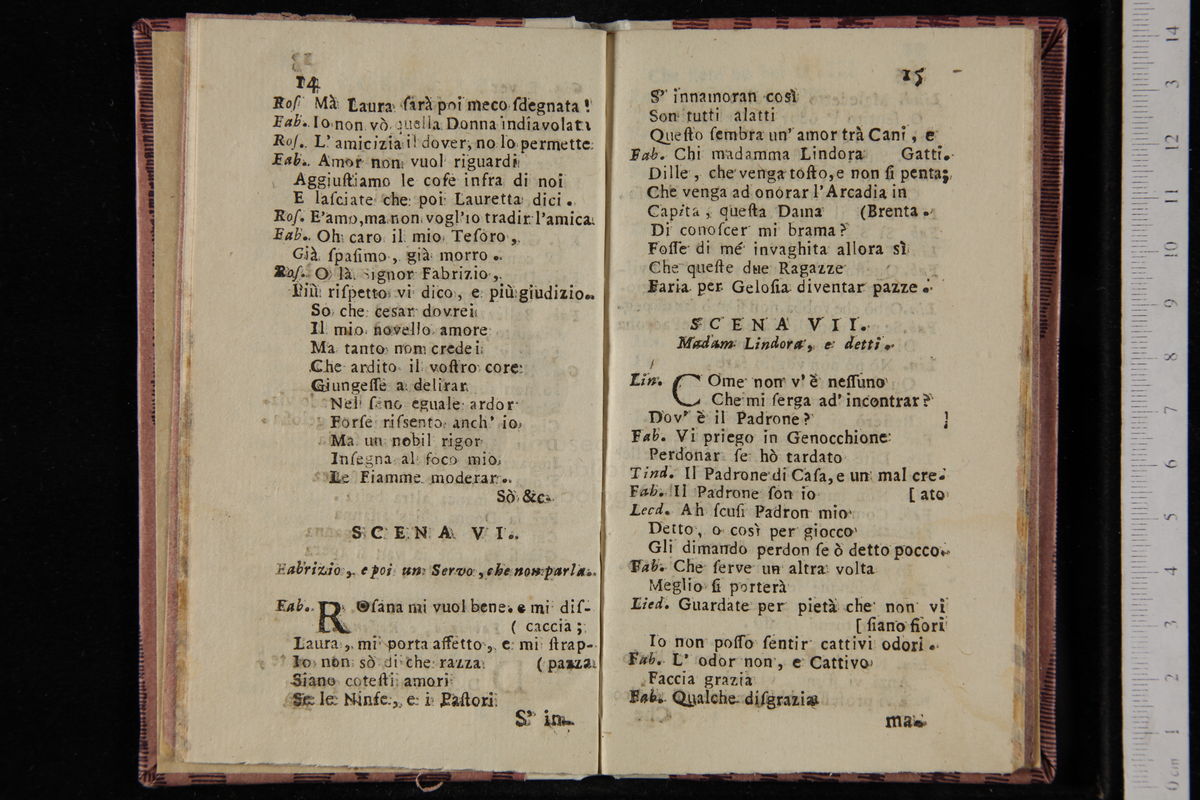 14
Roſ. Mà Laura ſarà poi meco ſdegnata!
Fab. Io non vò quella Donna indiavolata
Roſ. L' amicizia il dover, no lo permette
Fab. Amor non vuol riguardi
Aggiuſtiamo le coſe infra di noi
E laſciate che poi Lauretta dici.
Roſ. E'amo, ma non vogl'io tradir l'amica
Fab. Oh caro il mio Teſoro,
Già ſpaſimo, già morro.
Roſ. O là Signor Fabrizio,
Più riſpetto vi dico, e più giudizio.
So che ceſar dovrei
Il mio novello amore
Ma tanto non credei
Che ardito il voſtro core
Giungeſſe a delirar
Nel ſeno eguale ardor
Forſe riſsento anch' io,
Ma un nobil rigor
Inſegna al foco mio,
Le Fiamme moderar.
Sò &c.
SCENA VI.
Fabrizio, e poi un Servo, che non parla.
Fab. ROſana mi vuol bene, e mi diſ-
( caccia;
Laura, mi porta affetto, e mi ſtrap-
Io non sò di che razza ( pazza
Siano coteſti amori
Se le Ninfe, e i Paſtori
S' in-
15
S' innamoran così
Son tutti alatti
Queſto ſembra un' amor trà Cani, e
Fab. Chi madamma Lindora Gatti.
Dille, che venga toſto, e non ſi penta;
Che venga ad onorar l'Arcadia in
Capita, queſta Dama (Brenta.
Di conoſcer mi brama?
Foſſe di mé invaghita allora sì
Che queſte due Ragazze
Faria per Geloſia diventar pazze.
SCENA VII.
Madam Lindora, e detti.
Lin. COme non v' è neſſuno
Che mi ſerga ad' incontrar?
Dov' è il Padrone? ]
Fab. Vi priego in Genocchione
Perdonar ſe hò tardato
Tind. Il Padrone di Caſa, e un mal cre-
Fab. Il Padrone ſon io [ ato
Lecd. Ah ſcuſi Padron mio
Detto, o così per giocco
Gli dimando perdon ſe ò detto pocco.
Fab. Che ſerve un altra volta
Meglio ſi porterà
Lied. Guardate per pietà che non vi
[ ſiano fiori
Io non poſſo ſentir cattivi odori.
Fab. L' odor non, e Cattivo
Faccia grazia
Fab. Qualche diſgrazia
ma-
14
13
12
11
10
9
8
7
6
5
4
3
2
1
0 cm